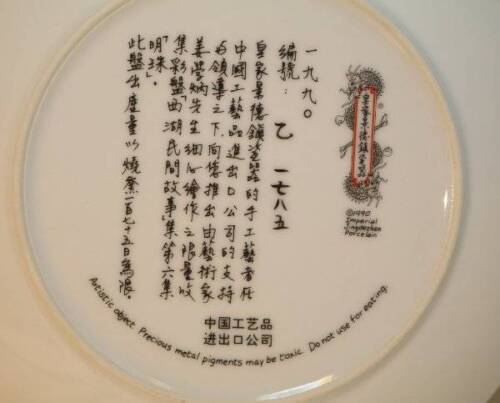 一九九〇
編號：乙 一七八五
皇家景德鎮瓷器的手工藝者在
中國工藝品進出口公司的支持
与領導之下，向您推出由藝術家
姜堂炳先生细心繪作之限量收
集彩盤西湖民間故事集第六集
「明珠」。
此盤出產量以燒窯一百七十五日為限。
皇家景德鎮瓷器
©1990
Imperial
Jingdezhen
Porcelain
中国工艺品
进出口公司
Artistic object. Precious metal pigments may be toxic. Do not use for eating.